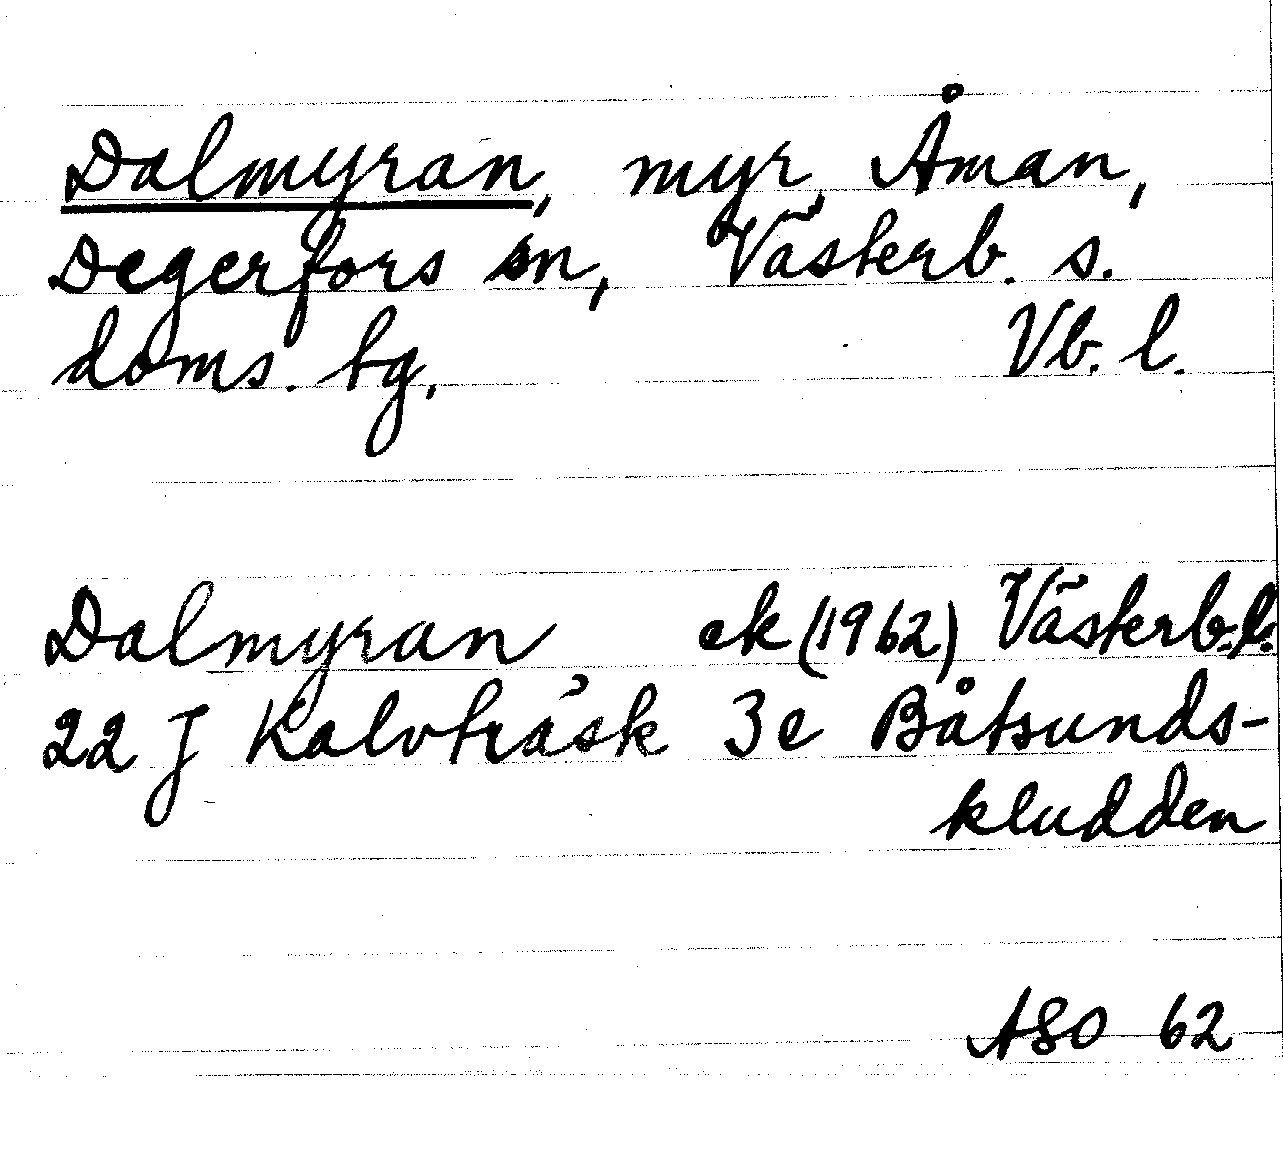 Dalmyran, myr, Åman,
Degerfors sn, Västerb. s.
doms. bg. Vb. l.
Dalmyran ek (1962) Västerb. l.
22 J Kalvträsk 3e Båtsunds-
kludden
ASO 62